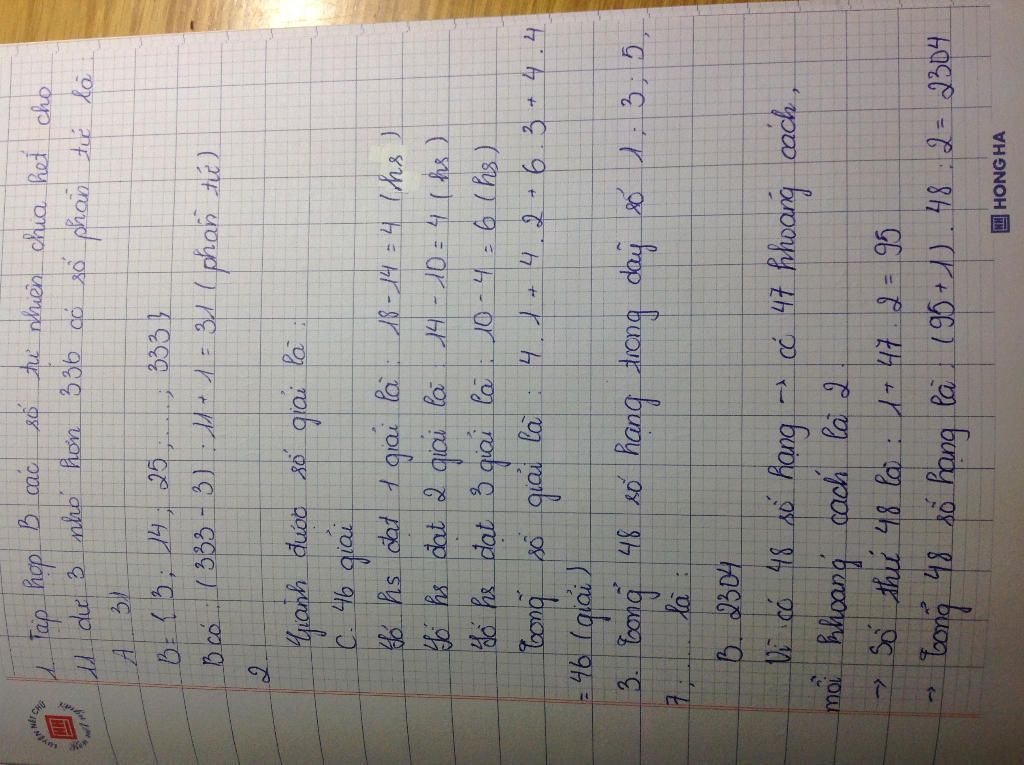 1. Tập hợp B các số tự nhiên chia hết cho
11 dư 3 nhỏ hơn 336 có số phần tử là:
A 31
B = { 3; 14; 25; .....; 333}
B có: (333 - 3) : 11 + 1 = 31 ( phần tử )
2
Giành được số giải là:
C. 46 giải
Số hs đạt 1 giải là: 18 - 14 = 4 ( hs )
Số hs đạt 2 giải là: 14 - 10 = 4 ( hs )
Số hs đạt 3 giải là: 10 - 4 = 6 ( hs )
Tổng số giải là: 4 . 1 + 4 . 2 + 6 . 3 + 4 . 4
= 46 (giải)
3. Tổng 48 số hạng trong dãy số 1 ; 3 ; 5 ;
7 ; ..... là:
B. 2304
Vì có 48 số hạng → có 47 khoảng cách,
mỗi khoảng cách là 2.
→ Số thứ 48 là: 1 + 47 . 2 = 95
→ Tổng 48 số hạng là: (95 + 1) . 48 : 2 = 2304
HONG HA
LUYỆN NÉT CHỮ